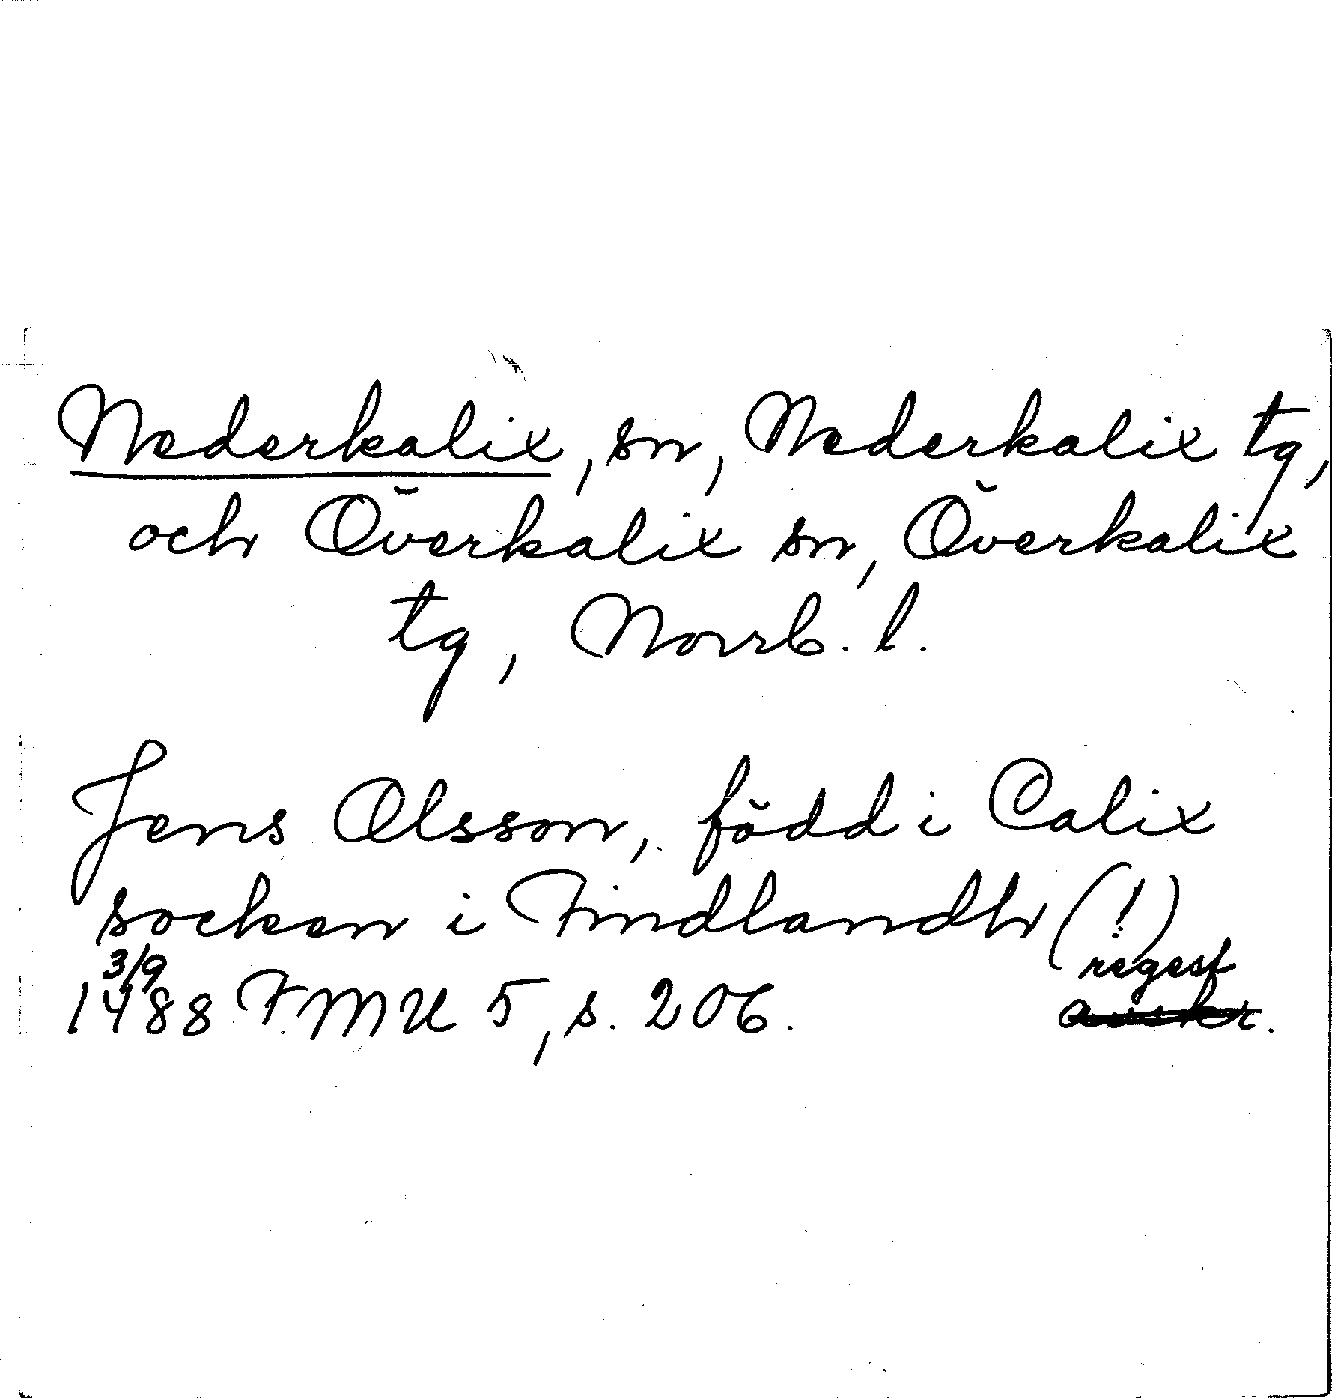 Nederkalix, sn, Nederkalix tg,
och Överkalix sn, Överkalix
tg, Norrb. l.
Jens Olsson, född i Calix
socken i Findlandh (!)
3/9 regest
1488 FMU 5, s. 206. avskr.